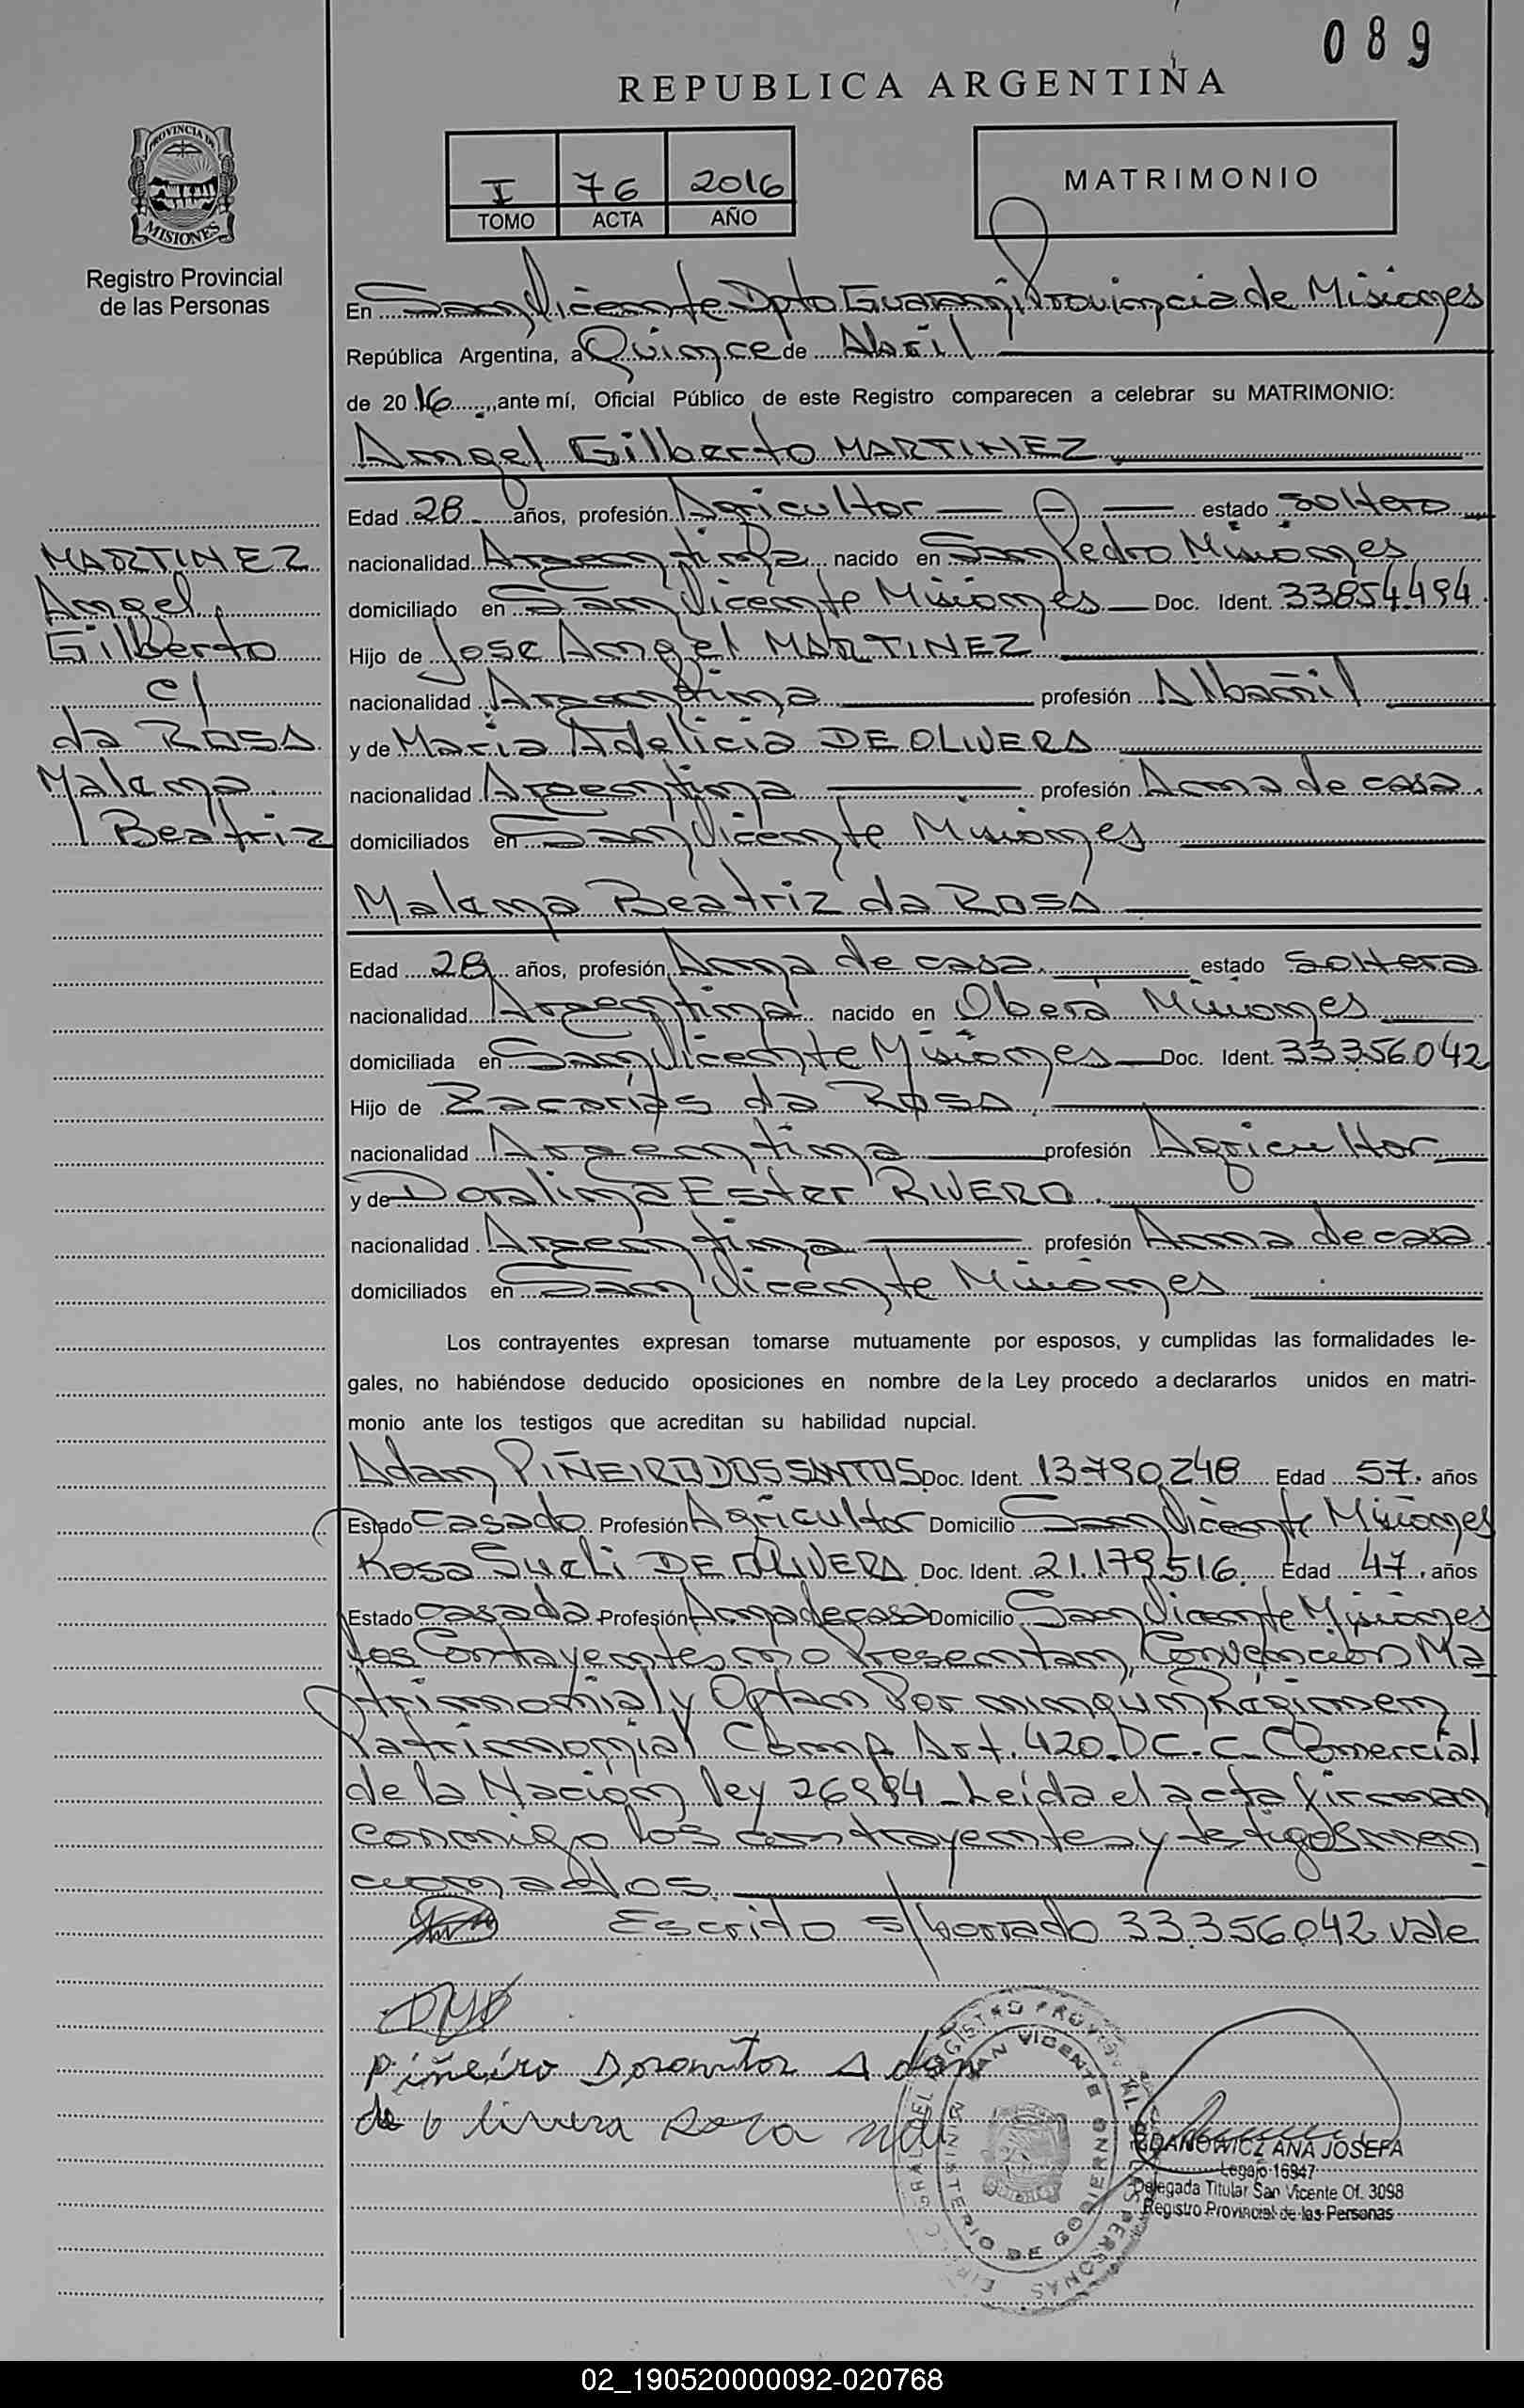 089
REPUBLICA ARGENTINA
PROVINCIA DE
MISIONES
Registro Provincial
de las Personas
I 76 2016
TOMO ACTA AÑO
MATRIMONIO
En San Vicente Dpto Guaraní Provincia de Misiones
República Argentina, a Quince de Abril
de 2016, ante mí, Oficial Público de este Registro comparecen a celebrar su MATRIMONIO:
Angel Gilberto MARTINEZ
Edad 28 años, profesión Agricultor estado soltero
nacionalidad Argentina nacido en San Pedro Misiones
domiciliado en San Vicente Misiones Doc. Ident. 33854494
Hijo de Jose Angel MARTINEZ
nacionalidad Argentina profesión Albañil
y de Maria Adelicia DE OLIVERA
nacionalidad Argentina profesión Ama de casa
domiciliados en San Vicente Misiones
MARTINEZ
Angel
Gilberto
c/
da ROSA
Malena
Beatriz
Malena Beatriz da ROSA
Edad 28 años, profesión Ama de casa estado Soltera
nacionalidad Argentina nacido en Oberá Misiones
domiciliada en San Vicente Misiones Doc. Ident. 33356042
Hijo de Zacarías da ROSA
nacionalidad Argentina profesión Agricultor
y de Doralina Ester RIVERO
nacionalidad Argentina profesión Ama de casa
domiciliados en San Vicente Misiones
Los contrayentes expresan tomarse mutuamente por esposos, y cumplidas las formalidades le-
gales, no habiéndose deducido oposiciones en nombre de la Ley procedo a declararlos unidos en matri-
monio ante los testigos que acreditan su habilidad nupcial.
Adan PIÑEIRO DOS SANTOS Doc. Ident. 13790248 Edad 57 años
Estado Casado Profesión Agricultor Domicilio San Vicente Misiones
Rosa Sueli DE OLIVERA Doc. Ident. 21.179516 Edad 47 años
Estado casada Profesión Ama de casa Domicilio San Vicente Misiones
Los Contrayentes no Presentan Convención Ma
trimonial y Optan Por ningun Régimen
Patrimonial Comp Art. 420 DC.C. Comercial
de la Nación ley 26994 Leída el acta firman
conmigo los contrayentes y testigos men
cionados.
Escrito s/borrado 33.356042 vale
Piñeiro Adan
de olivera Rosa
SAN VICENTE
MINISTERIO DE GOBIERNO
ZDANOWICZ ANA JOSEFA
Legajo 16947
Delegada Titular San Vicente Of. 3098
Registro Provincial de las Personas
02_190520000092-020768